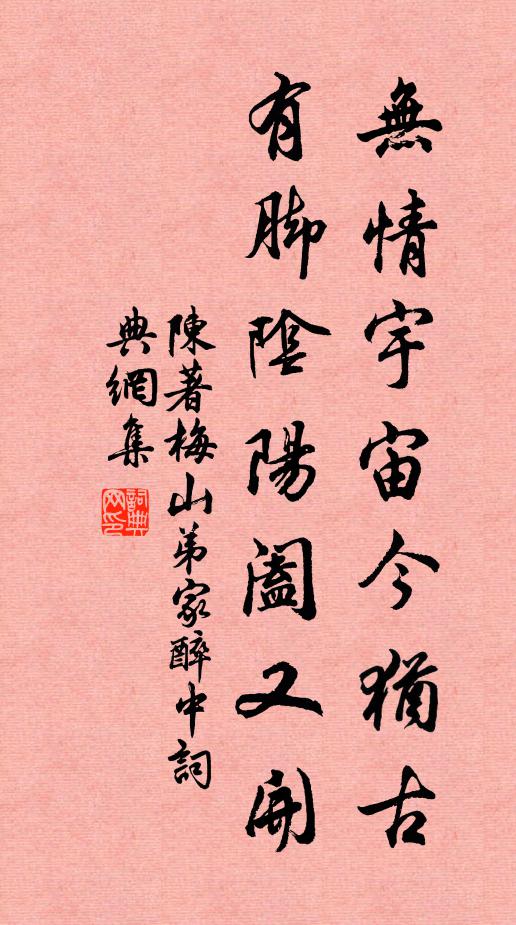 無情宇宙今猶古
有脚陰陽闔又開
陳著梅山弟家醉中詞
典網集
詞典
网印